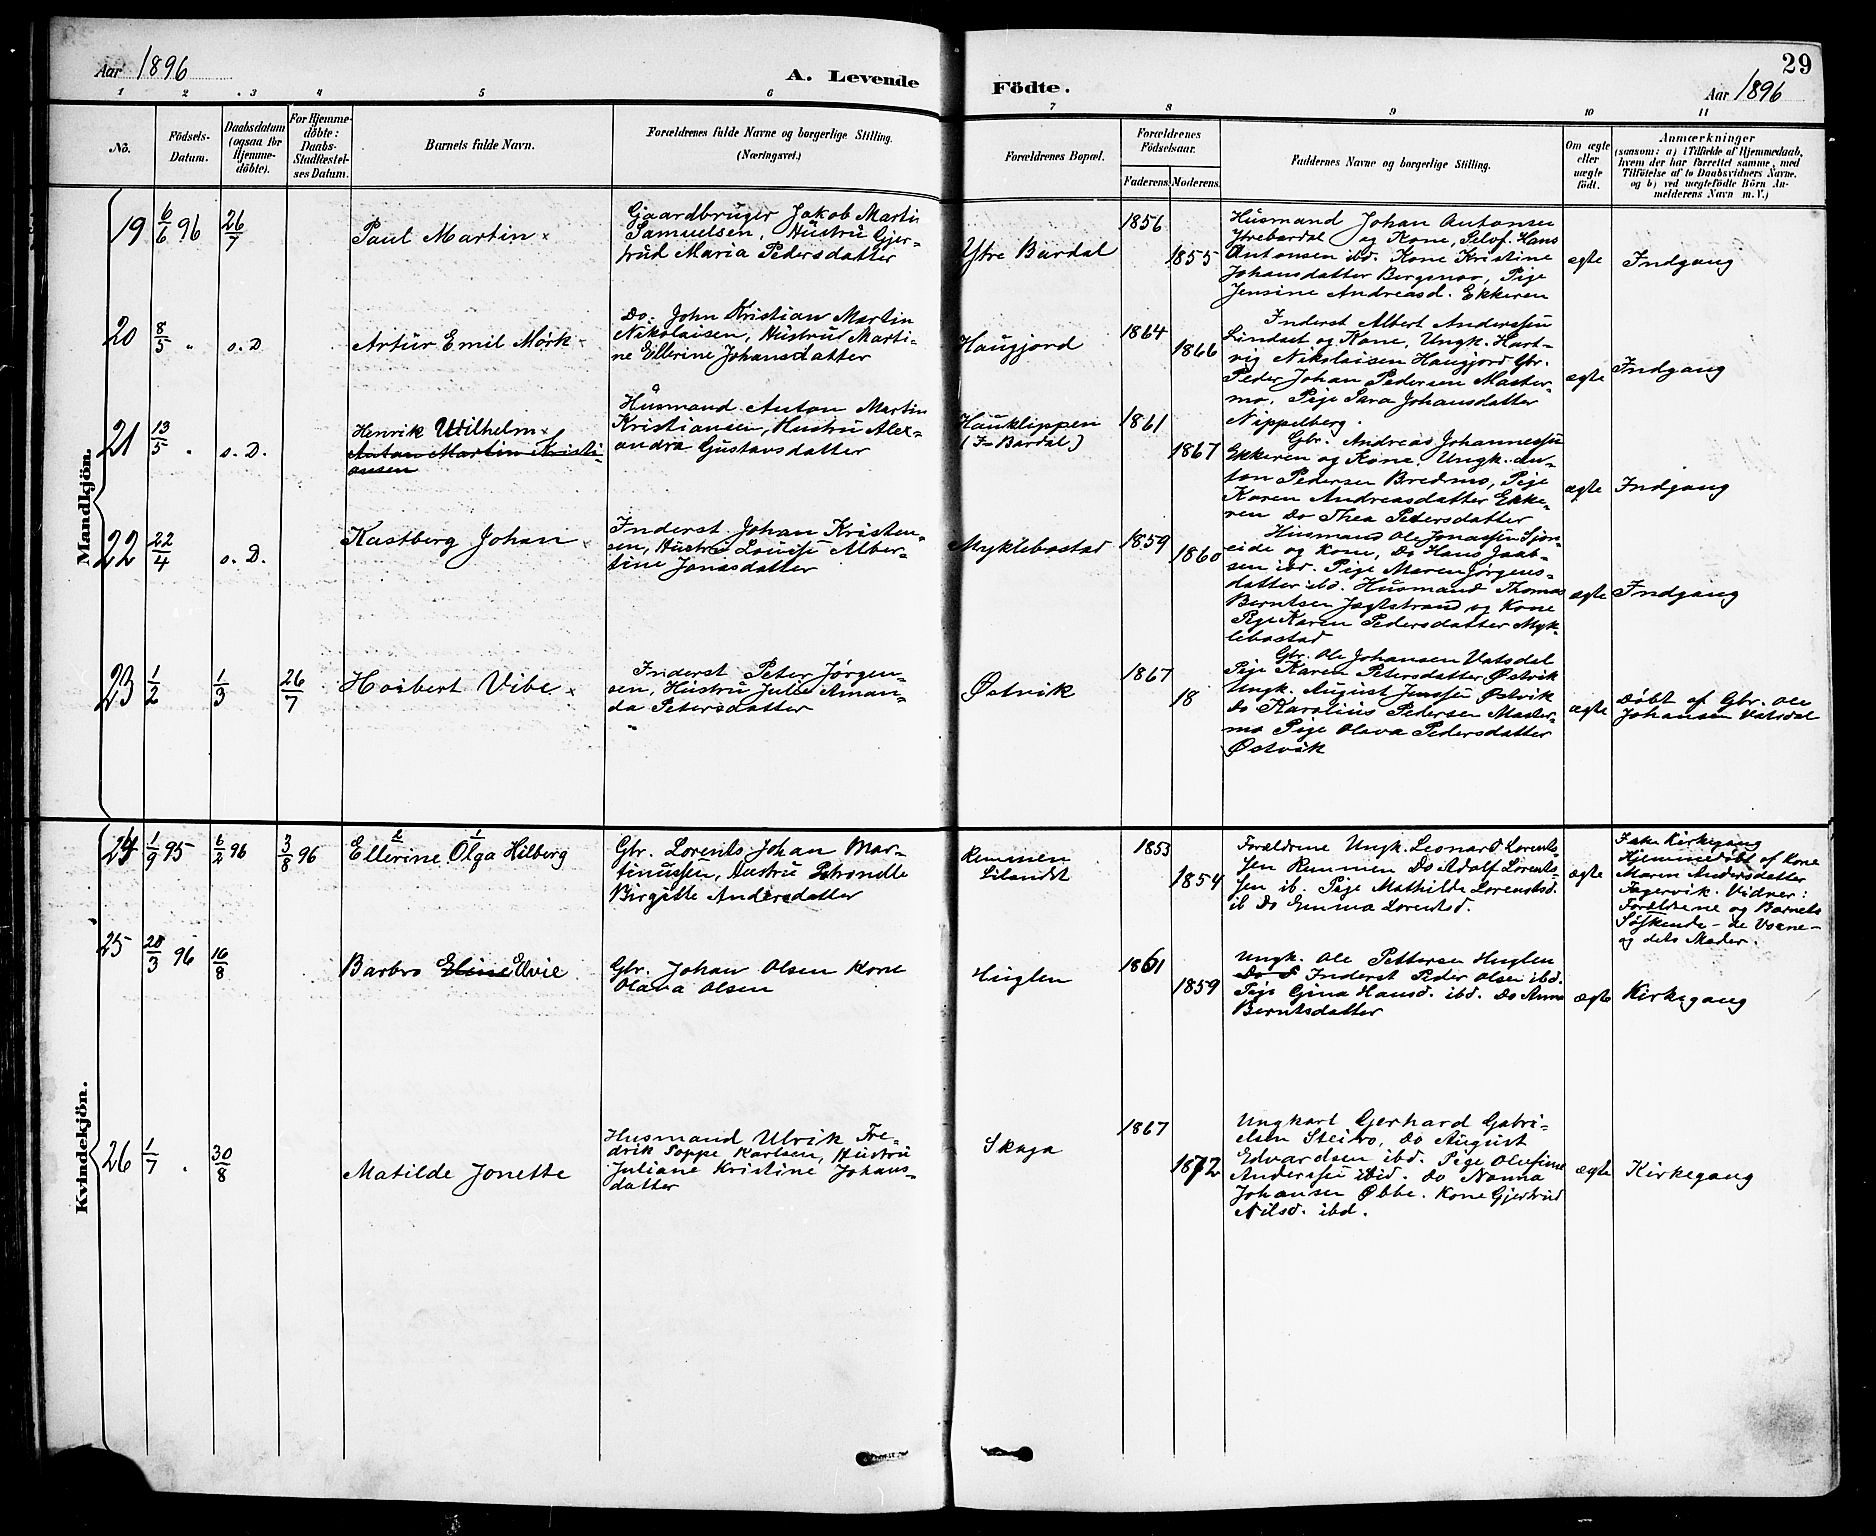 29
Aar 1896
A. Levende
Födte.
Aar 1896
1 2 3 4 5 6 7 8 9 10 11
No.
Födsels-
Datum.
Daabsdatum
(ogsaa for
Hjemme-
döbte).
For Hjemme-
döbte:
Daabs-
Stadfæstel-
ses Datum.
Barnets fulde Navn.
Forældrenes fulde Navne og borgerlige Stilling.
(Næringsvei.)
Forældrenes Bopæl.
Forældrenes
Födselsaar.
Faderens. Moderens.
Faddernes Navne og borgerlige Stilling.
Om ægte
eller
uægte
födt.
Anmærkninger
(saasom: a) i Tilfælde af Hjemmedaab,
hvem der har forrettet samme, med
Tilföielse af to Daabsvidners Navne.
og b) ved uægtefödte Börn An-
melderens Navn m. V.)
Mandkjön.
19 6/6 96 26/7
Paul Martin
Gaardbruger Jakob Martin
Samuelsen, Hustru Gjer-
trud Maria Pedersdatter
Ytre Bardal
1856
1855
Husmand Johan Antonsen
Ytrebardal og Kone, Selvf. Hans
Antonsen ibd. Kone Kristine
Johansdatter Bergsnov, Pige
Jensine Andreasd. Ekkeren
ægte
Indgang
20 8/5 " s. D
Artur Emil Mørk
Do. John Kristian Martin
Nikolaisen, Hustru Marti-
ne Ellerine Johansdatter
Haugjord
1864
1866
Inderst Albert Anderssen
Lindset og Kone, Ungk. Hart-
vig Nikolaisen Haugjord Gbr.
Peder Johan Pedersen Master-
mo, Pige Sara Johansdatter
Nippelberg.
ægte
Indgang
21 13/5 " s. D.
Henrik Wilhelm
Anton Martin Kristi-
ansen
Husmand Anton Martin
Kristiansen, Hustru Alex-
andra Gustavsdatter
Hauklippen
(I= Bardal)
1861
1867
Gbr. Andreas Johannessen
Ekkeren og Kone, Ungk. An-
ton Pedersen Bredmo, Pige
Karen Andreasdatter Ekke-
ren Do Thea Pedersdatter
ægte
Indgang
22 22/4 s. D.
Kastberg Johan
Inderst Johan Kristen-
sen, Hustru Louise Alber-
tine Jonasdatter
Myklebostad
1859
1860
Husmand Ole Jonassen Sjon-
eide og Kone, Do Hans Jaab-
sen ibd. Pige Maren Jørgens-
datter ibd. Husmand Thomas
Berntsen Jægtstrand og Kone
Pige Karen Pedersdatter Myk-
lebostad
ægte
Indgang
23 1/2 1/3 26/7
Hoibert Vibe
Inderst Peter Jørgen-
sen, Hustru Julie Aman-
da Petersdatter
Østvik
1867
18
Gbr. Ole Johansen Vatsdal
Pige Karen Petersdatter Østvik
Ungk. August Jenssen Østvik
Do Karolius Pedersen Master-
mo Pige Olava Pedersdatter
Østvik
ægte
Døbt af Gbr. Ole
Johansen Vatsdal
Kvindekjön.
24 1/9 95 6/2 96 3/8 96
2 1
Ellerine Olga Hilberg
Gbr. Lorents Johan Mar-
tinussen, Hustru Petronelle
Birgitte Andersdatter
Remmen
1853
1854
Forældrene Ungk. Leonard Lorents-
sen Remmen Do Adolf Lorents-
sen ib. Pige Mathilde Lorentsd.
ib Do Emma Lorentsd.
ægte
Ikke Kirkegang
Hjemmedøbt af Kone
Maren Andersdatter
Fagervik. Vidner:
Forældrene og Barnets
Søskende - de Voxne -
og dets Moder.
25 20/3 96 16/8
Barbro Eline Elvie
Gbr. Johan Olsen Kone
Olava Olsen
Huglen
1861
1859
Ungk. Ole Pettersen Huglen
Do P Inderst Peder Olsen ibd.
Pige Gina Hansd. ibd. Do Anna
Berntsdatter
ægte
Kirkegang
26 1/7 " 30/8
Matilde Jonette
Husmand Ulrik Fre-
drik Soppe Karlsen, Hustru
Juliane Kristine Johans-
datter
Skaga
1867
1872
Ungkarl Gerhard Gabri-
elsen Steiro, Do August
Edvardsen ibd. Pige Olufine
Anderssen ibid. Do Nanna
Johansen Øbbe. Kone Gjertrud
Nilsd. ibd.
ægte
Kirkegang